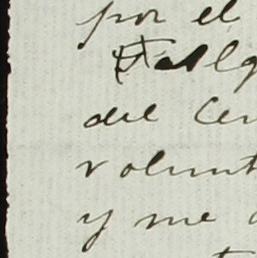 por el
del Cen
volunt
y me